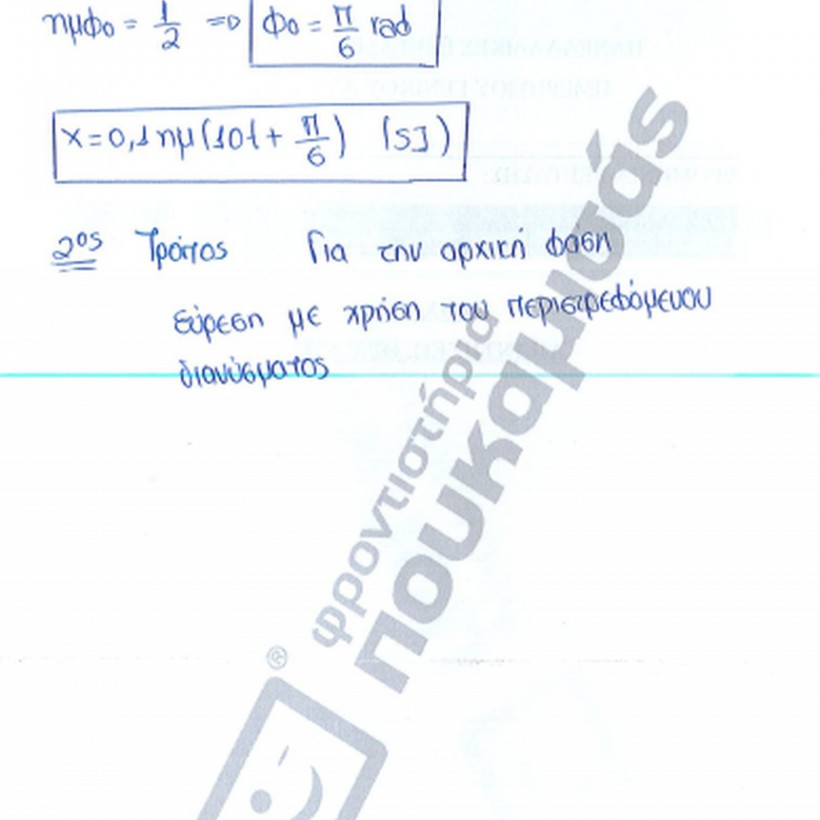 ημφ₀ = 1/2 ⇒ φ₀ = π/6 rad
x = 0,1 ημ(10t + π/6) (SI)
2ος Τρόπος Για την αρχική φάση
εύρεση με χρήση του περιστρεφόμενου
διανύσματος
φροντιστήρια
πουκαμισάς
®